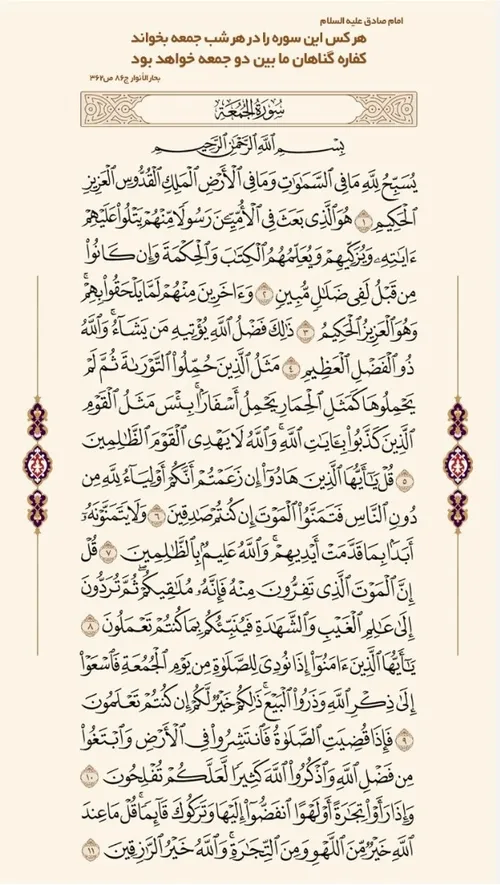 امام صادق علیه السلام
هر کس این سوره را در هر شب جمعه بخواند
کفاره گناهان ما بین دو جمعه خواهد بود
بحارالأنوار ج۸۶ ص۳۶۲
سُورَةُ الْجُمُعَةِ
بِسْمِ اللَّهِ الرَّحْمَٰنِ الرَّحِيمِ
يُسَبِّحُ لِلَّهِ مَا فِي السَّمَٰوَٰتِ وَمَا فِي الْأَرْضِ الْمَلِكِ الْقُدُّوسِ الْعَزِيزِ
الْحَكِيمِ ١ هُوَ الَّذِي بَعَثَ فِي الْأُمِّيِّـۧنَ رَسُولًا مِّنْهُمْ يَتْلُوا۟ عَلَيْهِمْ
ءَايَٰتِهِۦ وَيُزَكِّيهِمْ وَيُعَلِّمُهُمُ الْكِتَٰبَ وَالْحِكْمَةَ وَإِن كَانُوا۟
مِن قَبْلُ لَفِي ضَلَٰلٍ مُّبِينٍ ٢ وَءَاخَرِينَ مِنْهُمْ لَمَّا يَلْحَقُوا۟ بِهِمْ ۚ
وَهُوَ الْعَزِيزُ الْحَكِيمُ ٣ ذَٰلِكَ فَضْلُ اللَّهِ يُؤْتِيهِ مَن يَشَآءُ ۚ وَاللَّهُ
ذُو الْفَضْلِ الْعَظِيمِ ٤ مَثَلُ الَّذِينَ حُمِّلُوا۟ التَّوْرَىٰةَ ثُمَّ لَمْ
يَحْمِلُوهَا كَمَثَلِ الْحِمَارِ يَحْمِلُ أَسْفَارًۢا ۚ بِئْسَ مَثَلُ الْقَوْمِ
الَّذِينَ كَذَّبُوا۟ بِـَٔايَٰتِ اللَّهِ ۚ وَاللَّهُ لَا يَهْدِي الْقَوْمَ الظَّٰلِمِينَ
٥ قُلْ يَٰٓأَيُّهَا الَّذِينَ هَادُوٓا۟ إِن زَعَمْتُمْ أَنَّكُمْ أَوْلِيَآءُ لِلَّهِ مِن
دُونِ النَّاسِ فَتَمَنَّوُا۟ الْمَوْتَ إِن كُنتُمْ صَٰدِقِينَ ٦ وَلَا يَتَمَنَّوْنَهُۥٓ
أَبَدًۢا بِمَا قَدَّمَتْ أَيْدِيهِمْ ۚ وَاللَّهُ عَلِيمٌۢ بِالظَّٰلِمِينَ ٧ قُلْ
إِنَّ الْمَوْتَ الَّذِي تَفِرُّونَ مِنْهُ فَإِنَّهُۥ مُلَٰقِيكُمْ ۖ ثُمَّ تُرَدُّونَ
إِلَىٰ عَٰلِمِ الْغَيْبِ وَالشَّهَٰدَةِ فَيُنَبِّئُكُم بِمَا كُنتُمْ تَعْمَلُونَ ٨
يَٰٓأَيُّهَا الَّذِينَ ءَامَنُوٓا۟ إِذَا نُودِيَ لِلصَّلَوٰةِ مِن يَوْمِ الْجُمُعَةِ فَاسْعَوْا۟
إِلَىٰ ذِكْرِ اللَّهِ وَذَرُوا۟ الْبَيْعَ ۚ ذَٰلِكُمْ خَيْرٌ لَّكُمْ إِن كُنتُمْ تَعْلَمُونَ
٩ فَإِذَا قُضِيَتِ الصَّلَوٰةُ فَانتَشِرُوا۟ فِي الْأَرْضِ وَابْتَغُوا۟
مِن فَضْلِ اللَّهِ وَاذْكُرُوا۟ اللَّهَ كَثِيرًا لَّعَلَّكُمْ تُفْلِحُونَ ١٠
وَإِذَا رَأَوْا۟ تِجَٰرَةً أَوْ لَهْوًا انفَضُّوٓا۟ إِلَيْهَا وَتَرَكُوكَ قَآئِمًا ۚ قُلْ مَا عِندَ
اللَّهِ خَيْرٌ مِّنَ اللَّهْوِ وَمِنَ التِّجَٰرَةِ ۚ وَاللَّهُ خَيْرُ الرَّٰزِقِينَ ١١